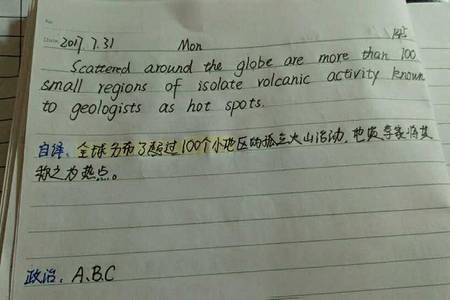 2017.7.31 Mon
Scattered around the globe are more than 100
small regions of isolate volcanic activity known
to geologists as hot spots.
自译:全球分布了超过100个小地区的孤立火山活动,地质学家将其
称之为热点。
政治:A.B.C